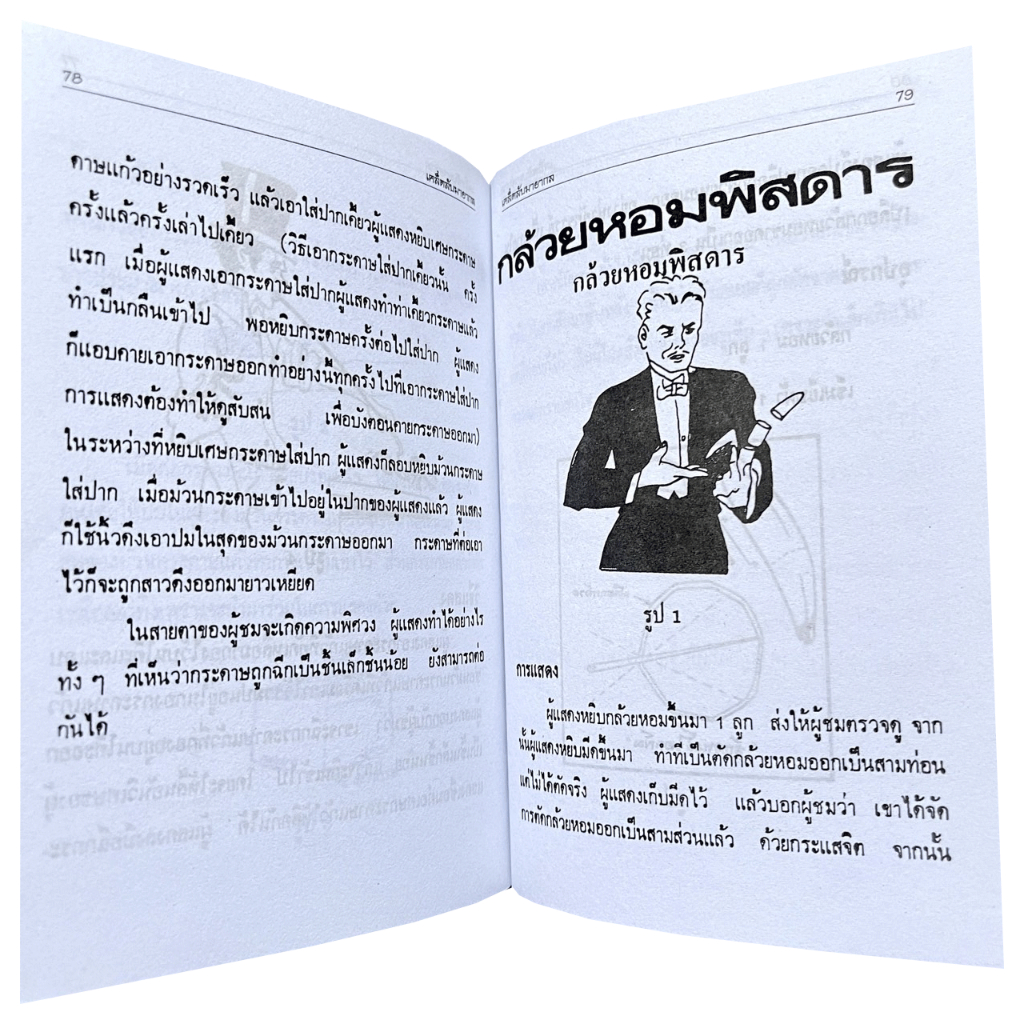 78
เคล็ดลับมายากล
ดาษแก้วอย่างรวดเร็ว แล้วเอาใส่ปากเคี้ยวผู้แสดงหยิบเศษกระดาษ
ครั้งแล้วครั้งเล่าไปเคี้ยว (วิธีเอากระดาษใส่ปากเคี้ยวนั้น ครั้ง
แรก เมื่อผู้แสดงเอากระดาษใส่ปากผู้แสดงทำท่าเคี้ยวกระดาษแล้ว
ทำเป็นกลืนเข้าไป พอหยิบกระดาษครั้งต่อไปใส่ปาก ผู้แสดง
ก็แอบคายเอากระดาษออกทำอย่างนี้ทุกครั้งไปที่เอากระดาษใส่ปาก
การแสดงต้องทำให้ดูสับสน เพื่อบังตอนคายกระดาษออกมา)
ในระหว่างที่หยิบเศษกระดาษใส่ปาก ผู้แสดงก็ลอบหยิบม้วนกระดาษ
ใส่ปาก เมื่อม้วนกระดาษเข้าไปอยู่ในปากของผู้แสดงแล้ว ผู้แสดง
ก็ใช้นิ้วดึงเอาปมในสุดของม้วนกระดาษออกมา กระดาษที่ต่อเอา
ไว้ก็จะถูกสาวดึงออกมายาวเหยียด
ในสายตาของผู้ชมจะเกิดความพิศวง ผู้แสดงทำได้อย่างไร
ทั้ง ๆ ที่เห็นว่ากระดาษถูกฉีกเป็นชิ้นเล็กชิ้นน้อย ยังสามารถต่อ
กันได้
79
เคล็ดลับมายากล
กล้วยหอมพิสดาร
กล้วยหอมพิสดาร
รูป 1
การแสดง
ผู้แสดงหยิบกล้วยหอมขึ้นมา 1 ลูก ส่งให้ผู้ชมตรวจดู จาก
นั้นผู้แสดงหยิบมีดขึ้นมา ทำทีเป็นตัดกล้วยหอมออกเป็นสามท่อน
แต่ไม่ได้ตัดจริง ผู้แสดงเก็บมีดไว้ แล้วบอกผู้ชมว่า เขาได้จัด
การตัดกล้วยหอมออกเป็นสามส่วนแล้ว ด้วยกระแสจิต จากนั้น